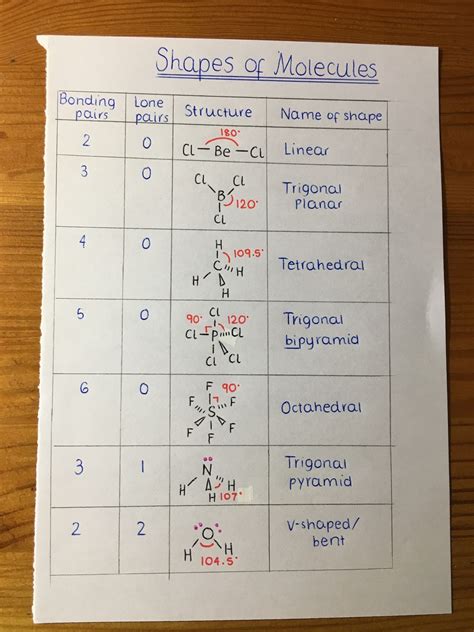 Shapes of Molecules
Bonding pairs Lone pairs Structure Name of shape
2 0 180° Cl — Be — Cl Linear
3 0 Cl Cl B 120° Cl Trigonal Planar
4 0 H 109.5° C H H H Tetrahedral
5 0 Cl 90° 120° Cl P Cl Cl Cl Trigonal bipyramid
6 0 F 90° F F S F F F Octahedral
3 1 N H H H 107° Trigonal pyramid
2 2 O H H 104.5° V-shaped/ bent